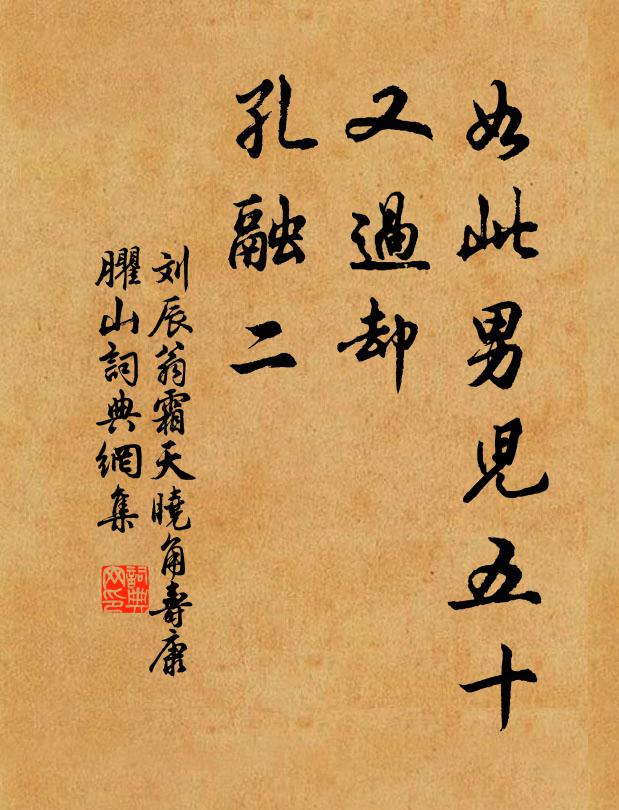 如此男兒五十
又過却
孔融二
刘辰翁霜天曉角壽康
臞山詞典網集
詞典
网印